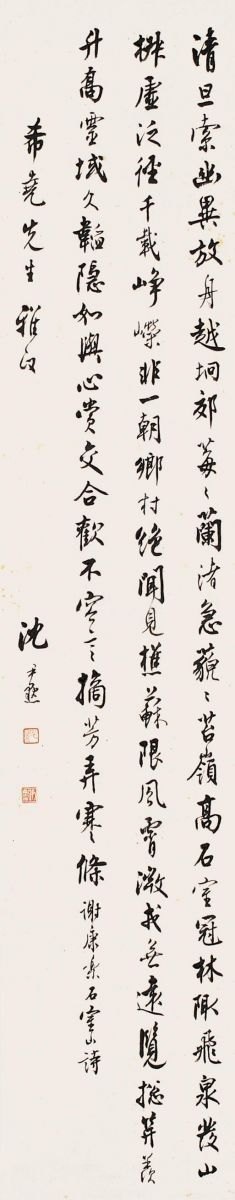 清旦索幽異放舟越坰郊莓〻蘭渚急藐〻苔嶺高石室冠林陬飛泉發山
椒虛泛徑千載崢嶸非一朝鄉村絕聞見樵蘇限風霄微我無遠覽總笄羨
升高靈域久韜隱如與心賞交合歡不容言摘芳弄寒條 謝康樂石室山詩
希堯先生雅
沈尹默